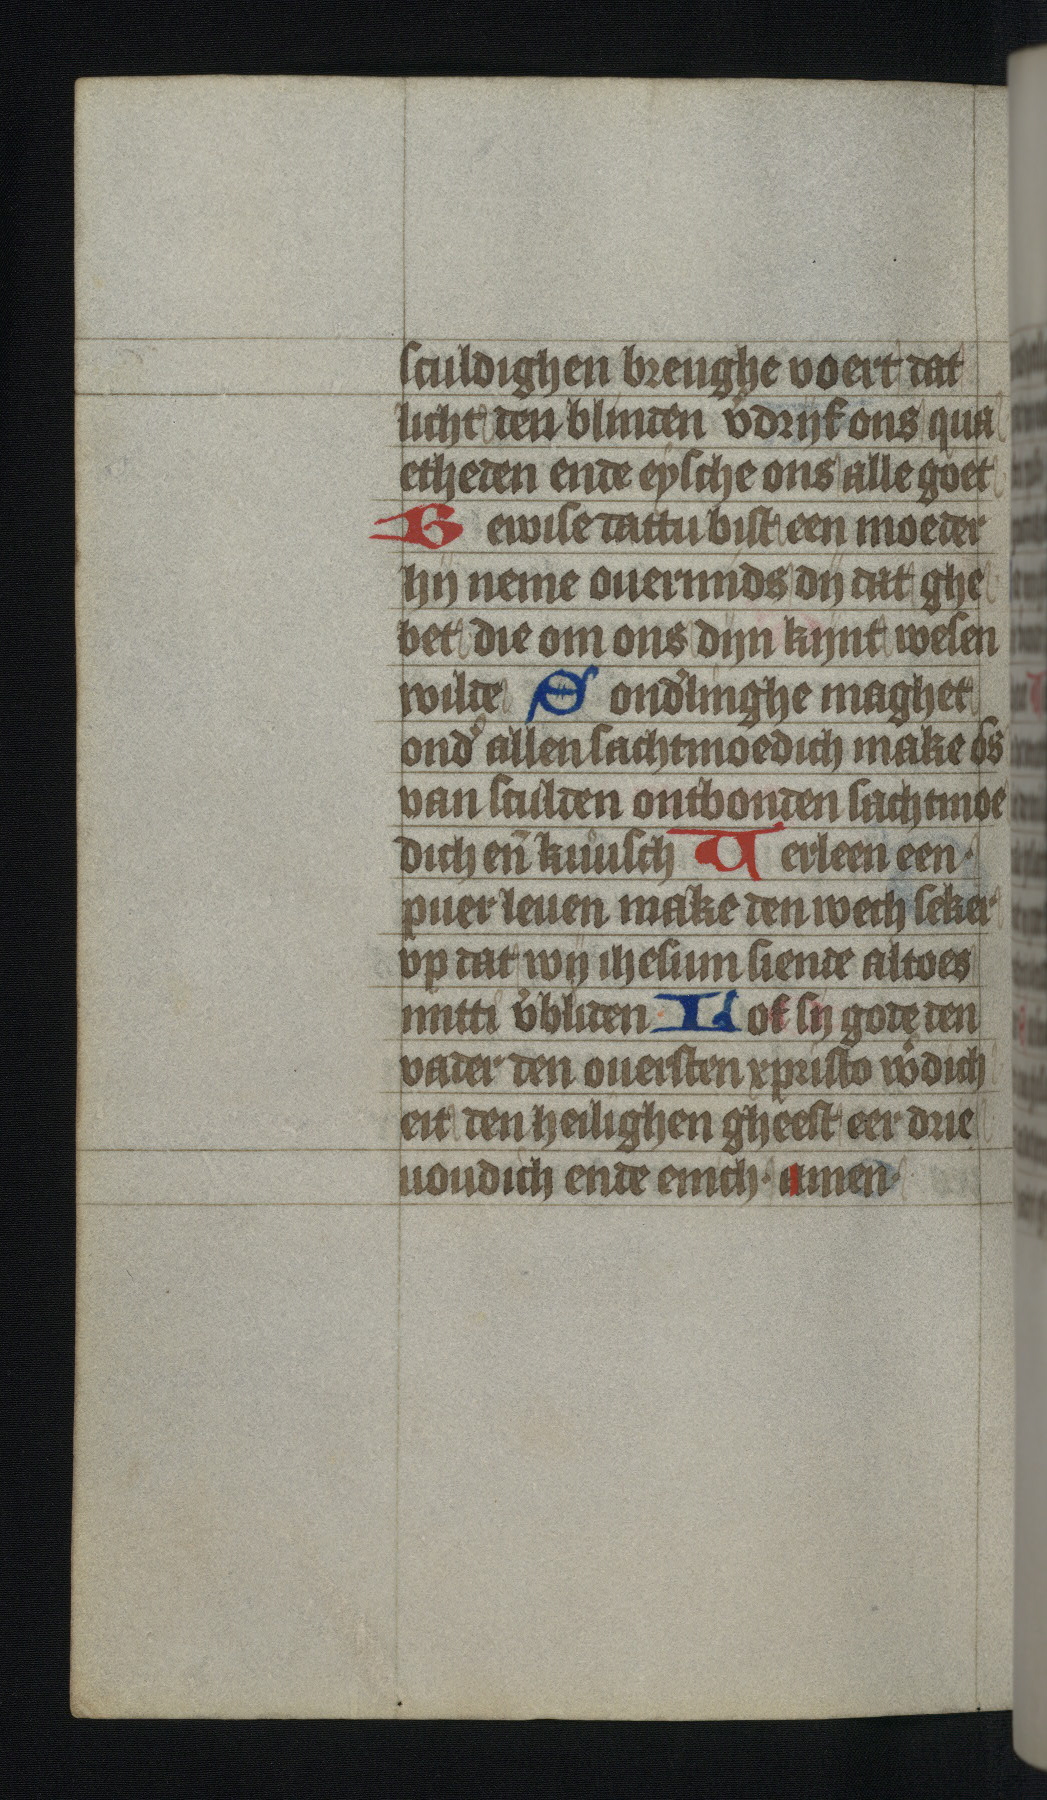 sculdighen brenghe voert dat
licht den blinden v̉drijf ons qua
etheden ende eysche ons alle goet
Bewise dattu bist een moeder
hij neme ouermids dij dat ghe
bet die om ons dijn kijnt wesen
wilde Sond̉linghe maghet
ond̉ allen sachtmoedich make ōs
van sculden ontbonden sachtmoe
dich en̄ kuusch Verleen een
puer leuen make den wech seker
vp dat wij ihesum siende altoes
mitti v̉bliden Lof sij gode den
vader den ouersten xpristo w̉dich
eit den heilighen gheest eer drie
uoudich ende enich· amen·